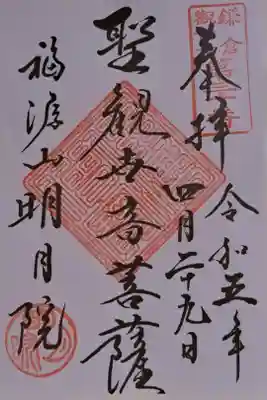 奉拝
令和五年
四月二十九日
聖観世音菩薩
福源山明月院